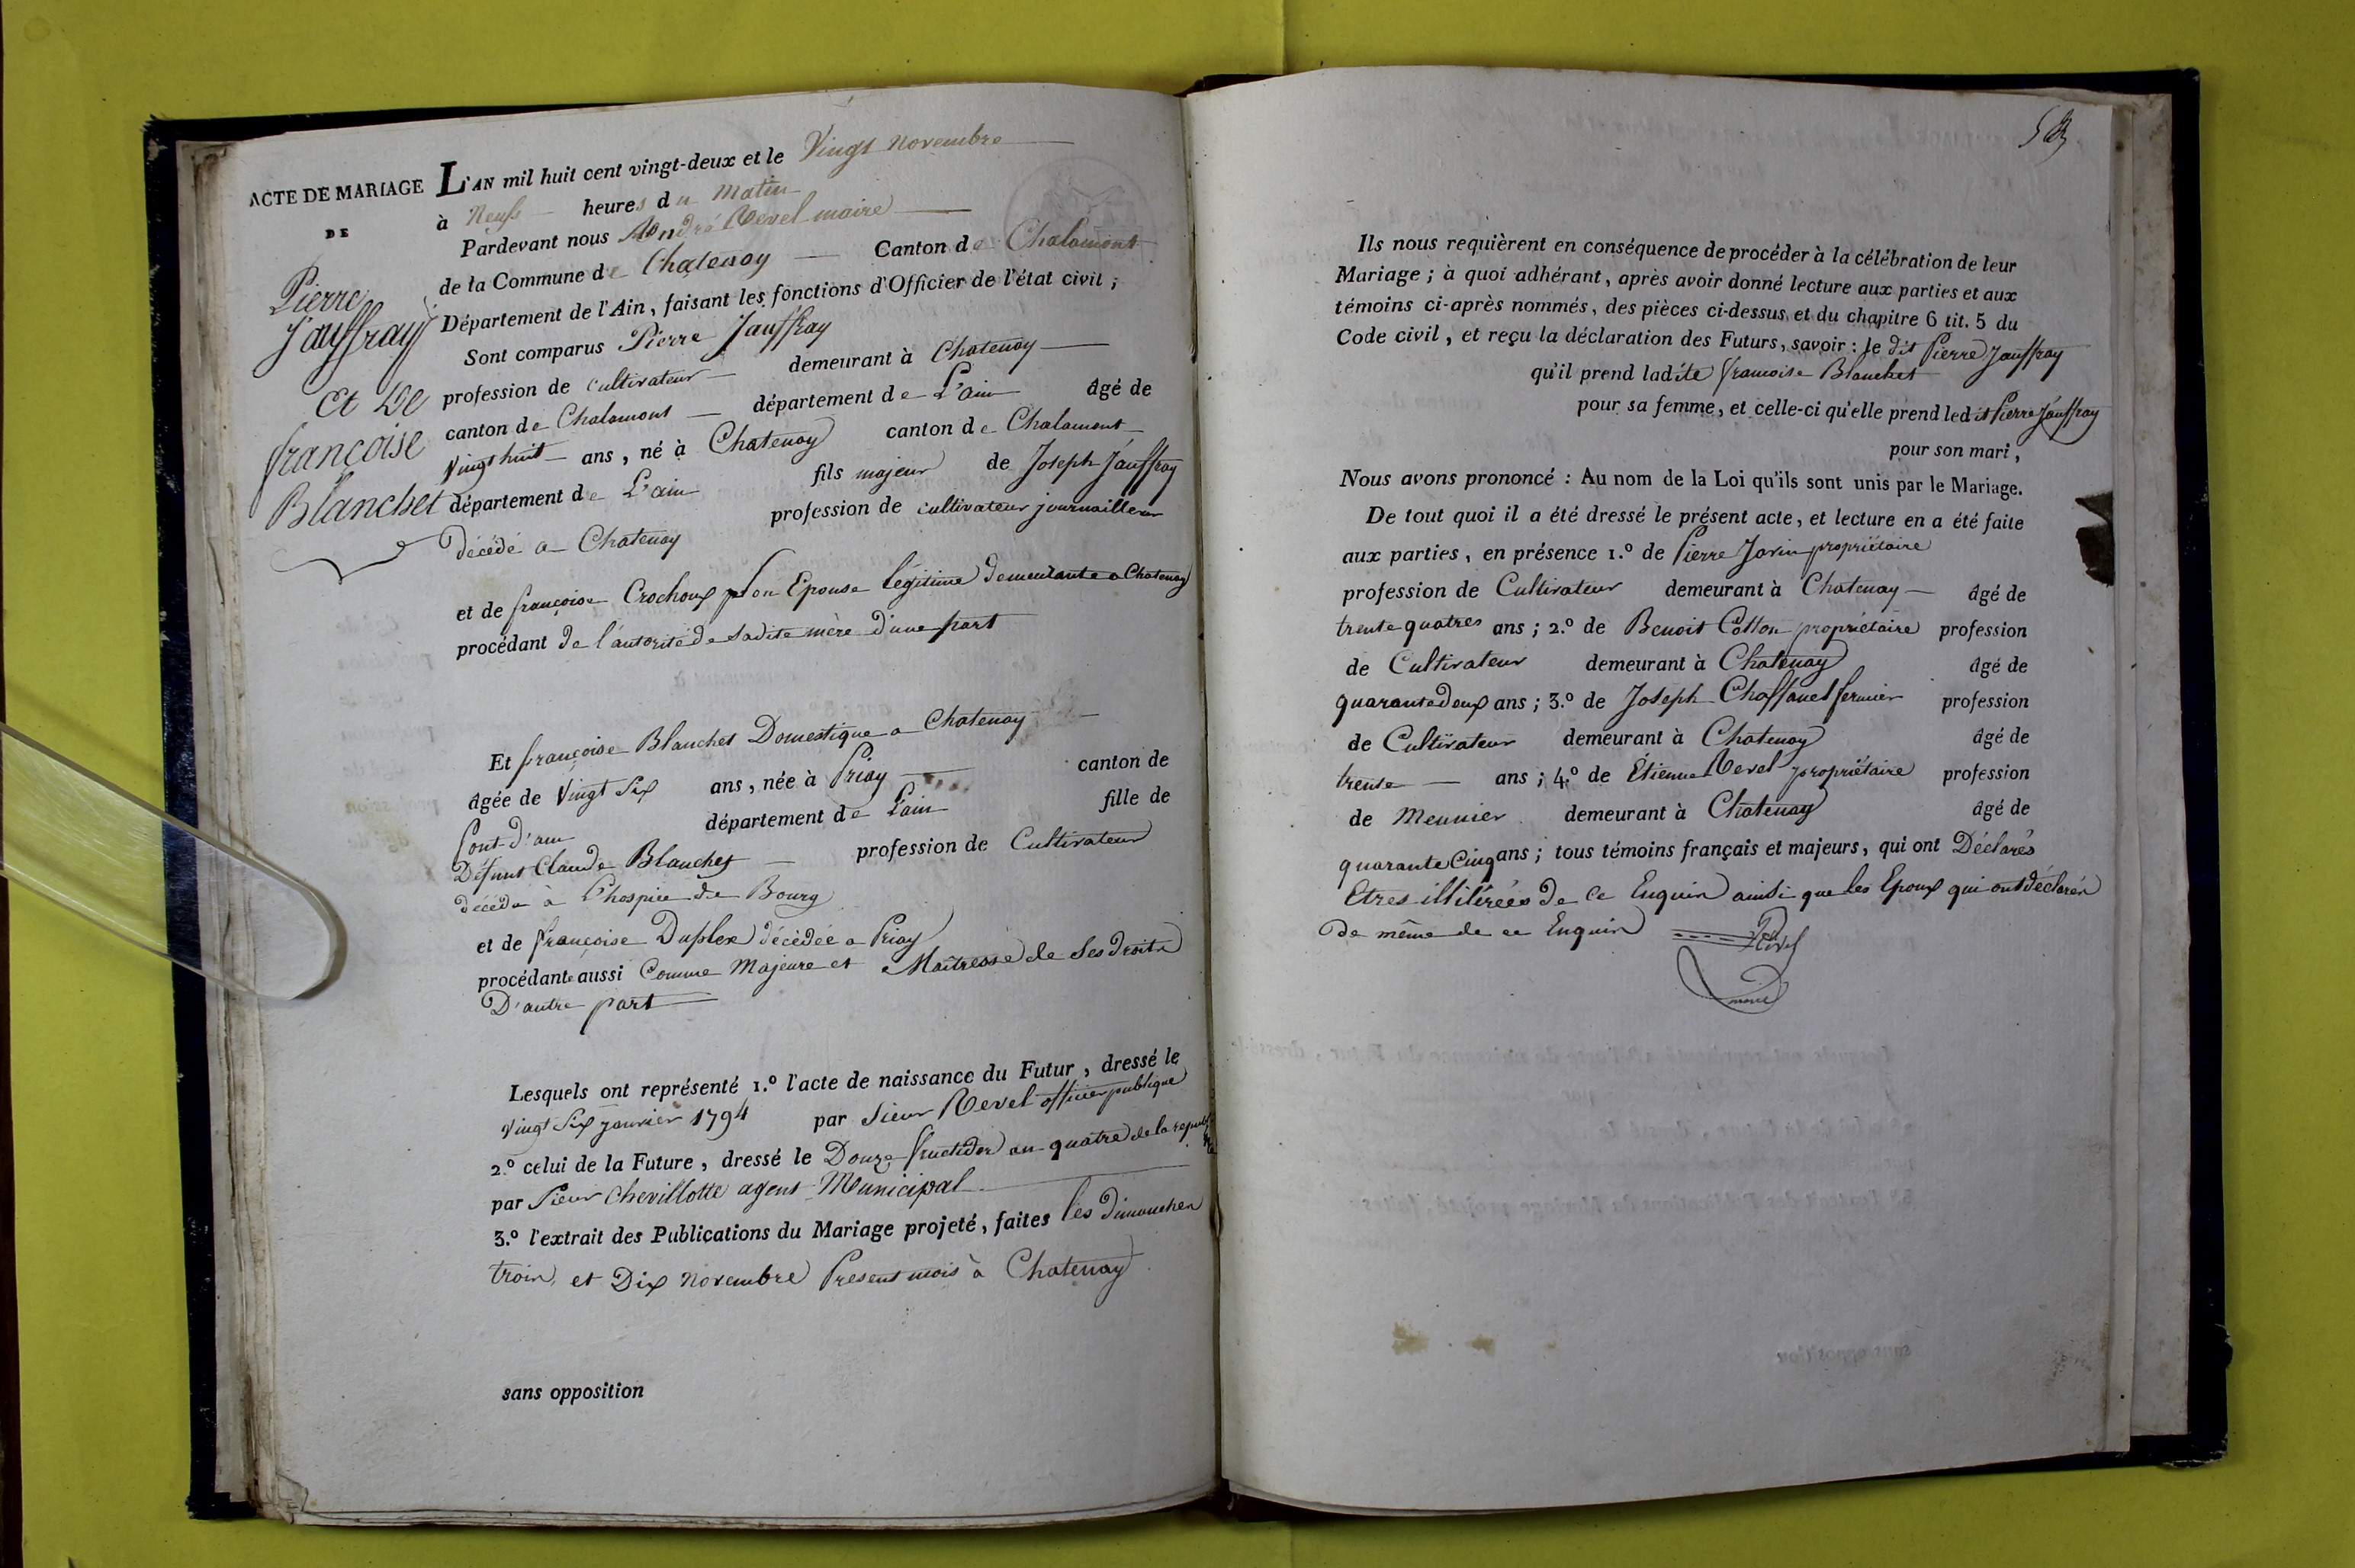 ACTE DE MARIAGE
DE
Pierre
Jauffray
et De
françoise
Blanchet
L'AN mil huit cent vingt-deux et le Vingt Novembre
à Neufs heures du Matin
Pardevant nous André Revel maire
de la Commune de Chatenay Canton de Chalamont
Département de l'Ain, faisant les fonctions d'Officier de l'état civil ;
Sont comparus Pierre Jauffray
profession de cultivateur demeurant à Chatenay
canton de Chalamont département de L'ain âgé de
Vingt huit ans, né à Chatenay canton de Chalamont
département de L'ain fils majeur de Joseph Jauffray
profession de cultivateur journailleur
décédé a Chatenay
et de françoise Crochoux son Epouse légitime demeurante a Chatenay
procédant de l'autorité de sadite mère d'une part
Et françoise Blanchet Domestique a Chatenay
âgée de Vingt Six ans, née à Priay canton de
Pont d'ain département de L'ain fille de
Défunt Claude Blanchet profession de Cultivateur
décédé à L'hospice de Bourg
et de françoise Duplex décédée a Priay
procédante aussi Comme Majeure et Maîtresse de Ses droits
D'autre part
Lesquels ont représenté 1.º l'acte de naissance du Futur, dressé le
Vingt Six janvier 1794 par Sieur Revel officier publique
2.º celui de la Future, dressé le Douze fructidor an quatre de la republique
par Sieur Chevillotte agent Municipal
3.º l'extrait des Publications du Mariage projeté, faites les dimanches
trois, et Dix Novembre Present mois à Chatenay
sans opposition
Ils nous requièrent en conséquence de procéder à la célébration de leur
Mariage ; à quoi adhérant, après avoir donné lecture aux parties et aux
témoins ci-après nommés, des pièces ci-dessus et du chapitre 6 tit. 5 du
Code civil, et reçu la déclaration des Futurs, savoir : le dit Pierre Jauffray
qu'il prend ladite francoise Blanchet
pour sa femme, et celle-ci qu'elle prend ledit Pierre Jauffray
pour son mari,
Nous avons prononcé : Au nom de la Loi qu'ils sont unis par le Mariage.
De tout quoi il a été dressé le présent acte, et lecture en a été faite
aux parties, en présence 1.º de Pierre Javin propriétaire
profession de Cultivateur demeurant à Chatenay âgé de
trente quatres ans ; 2.º de Benoit Cotton propriétaire profession
de Cultivateur demeurant à Chatenay âgé de
quarante deux ans ; 3.º de Joseph Chaffanel fermier profession
de Cultivateur demeurant à Chatenay âgé de
trente ans ; 4.º de Étienne Revel propriétaire profession
de Meunier demeurant à Chatenay âgé de
quarante Cinq ans ; tous témoins français et majeurs, qui ont Déclarés
Etres illitérées de ce Enquis ainsi que les Epoux qui ont déclarés
de même de ce Enquis Revel
maire